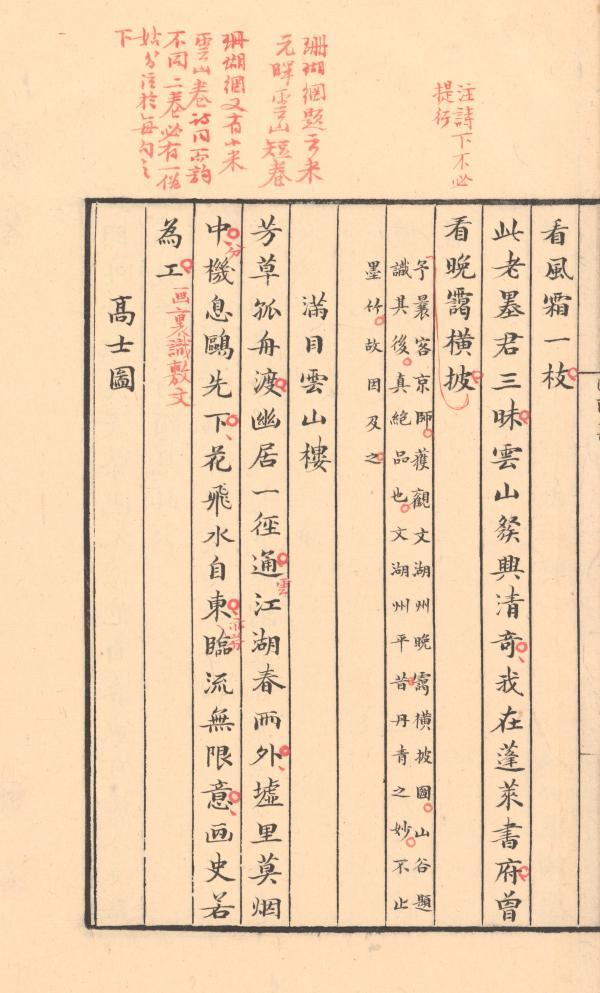 注詩下不必
提行
珊瑚網題云米
元暉雲山短卷
珊瑚網又有小米
雲山卷詩同而韵
不同二卷必有一偽
姑分注於每句之
下
看風霜一枝
此老墨君三昧雲山發興清奇我在蓬萊書府曾
看晚靄橫披
予曩客京師獲觀文湖州晚靄橫披圖山谷題
識其後真絕品也文湖州平昔丹青之妙不止
墨竹故因及之
滿目雲山樓
芳草孤舟渡幽居一徑通江湖春雨外墟里莫烟
雲
中機息鷗先下花飛水自東臨流無限意畫史若
分
為工
画裏識敷文
高士圖